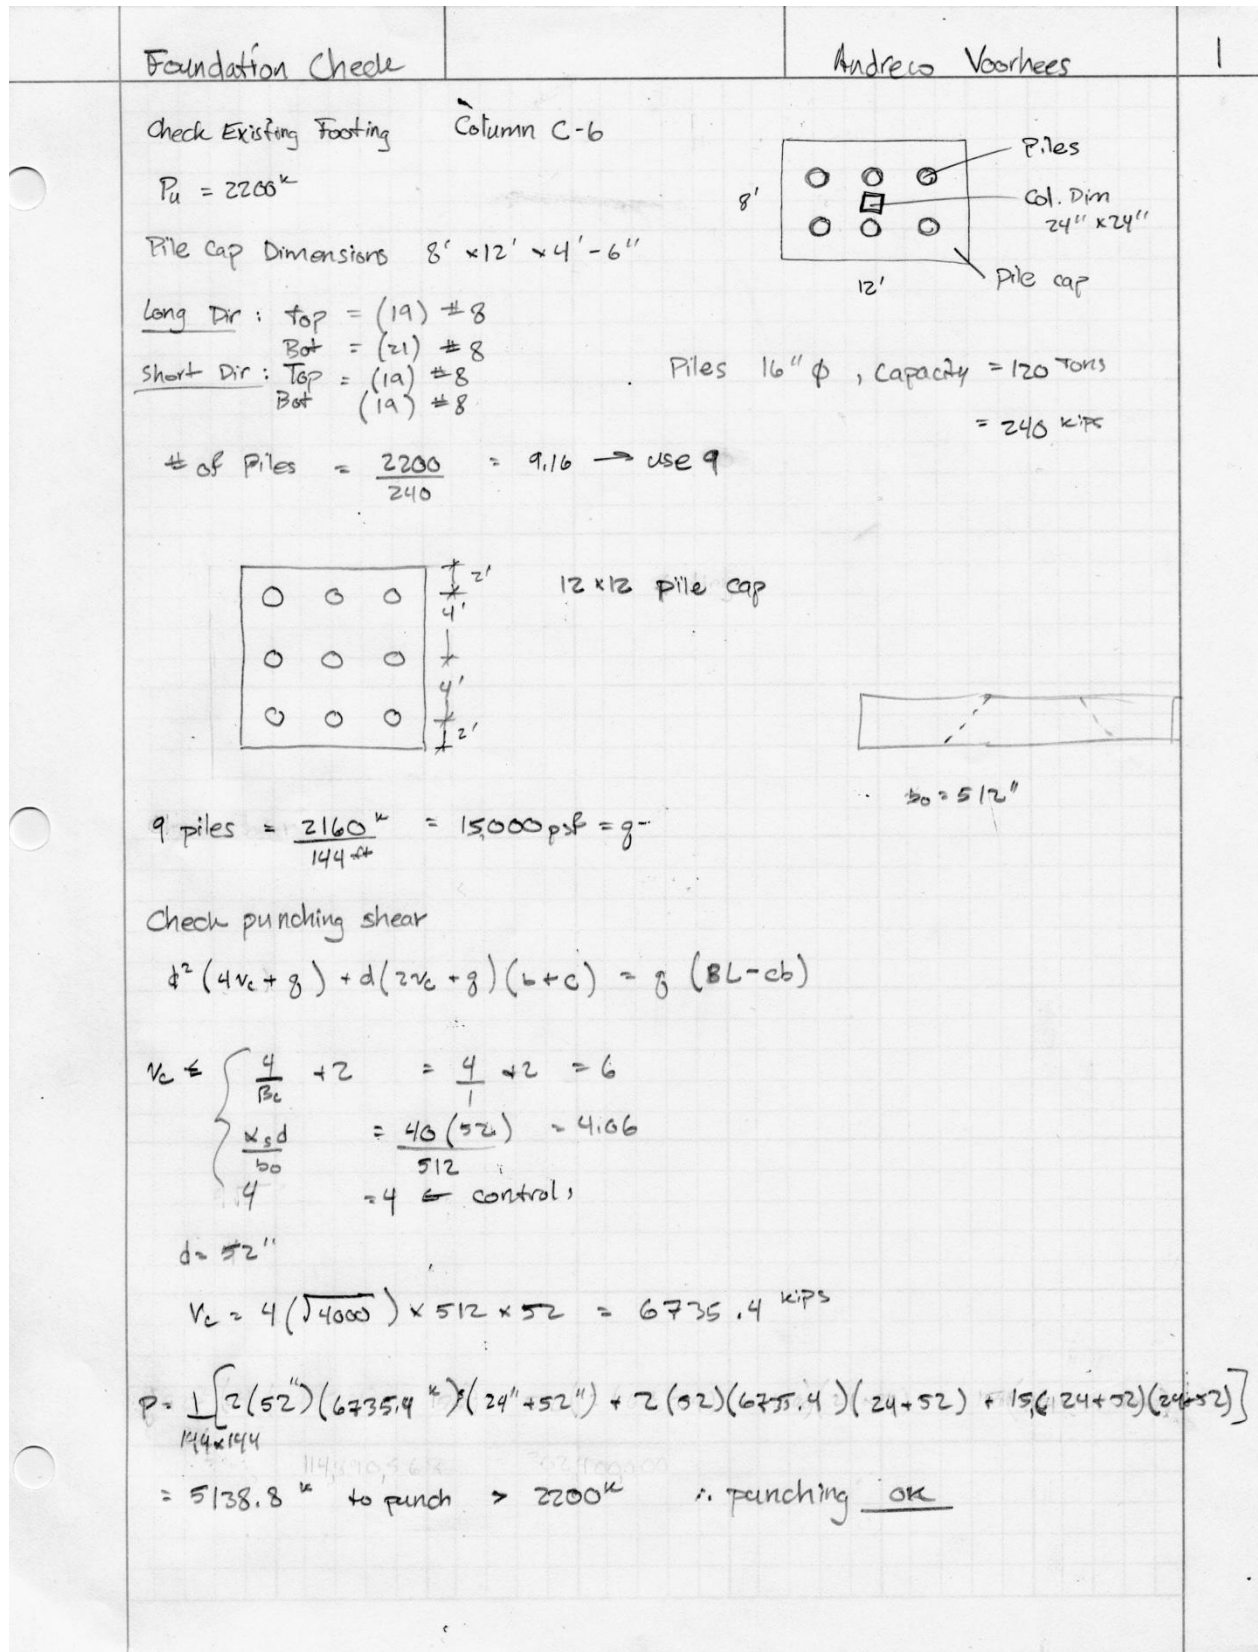 Foundation Check
Andrew Voorhees
1
Check Existing Footing Column C-6
Pu = 2200ᵏ
Pile Cap Dimensions 8' × 12' × 4'-6"
8'
12'
Piles
Col. Dim
24" × 24"
Pile cap
Long Dir : Top = (19) #8
Bot = (21) #8
Short Dir : Top = (19) #8
Bot (19) #8
Piles 16" ϕ , Capacity = 120 Tons
= 240 kips
# of Piles = 2200/240 = 9.16 → use 9
2'
4'
4'
2'
12 × 12 pile cap
b₀ = 512"
9 piles = 2160ᵏ/144 ft = 15,000 psf = q
Check punching shear
d² (4vc + q) + d(2vc + q)(b + c) = q (BL - cb)
Vc ≤ { 4/Bc + 2 = 4/1 + 2 = 6
αsd/b₀ = 40 (52)/512 = 4.06
4 = 4 ← controls
d = 52"
Vc = 4 (√4000) × 512 × 52 = 6735.4 kips
P = 1/144×144 [2(52")(6735.4 ᵏ)(24" + 52") + 2(52)(6735.4)(24 + 52) + 15(24 + 52)(24+52)]
= 5138.8 ᵏ to punch > 2200ᵏ ∴ punching OK